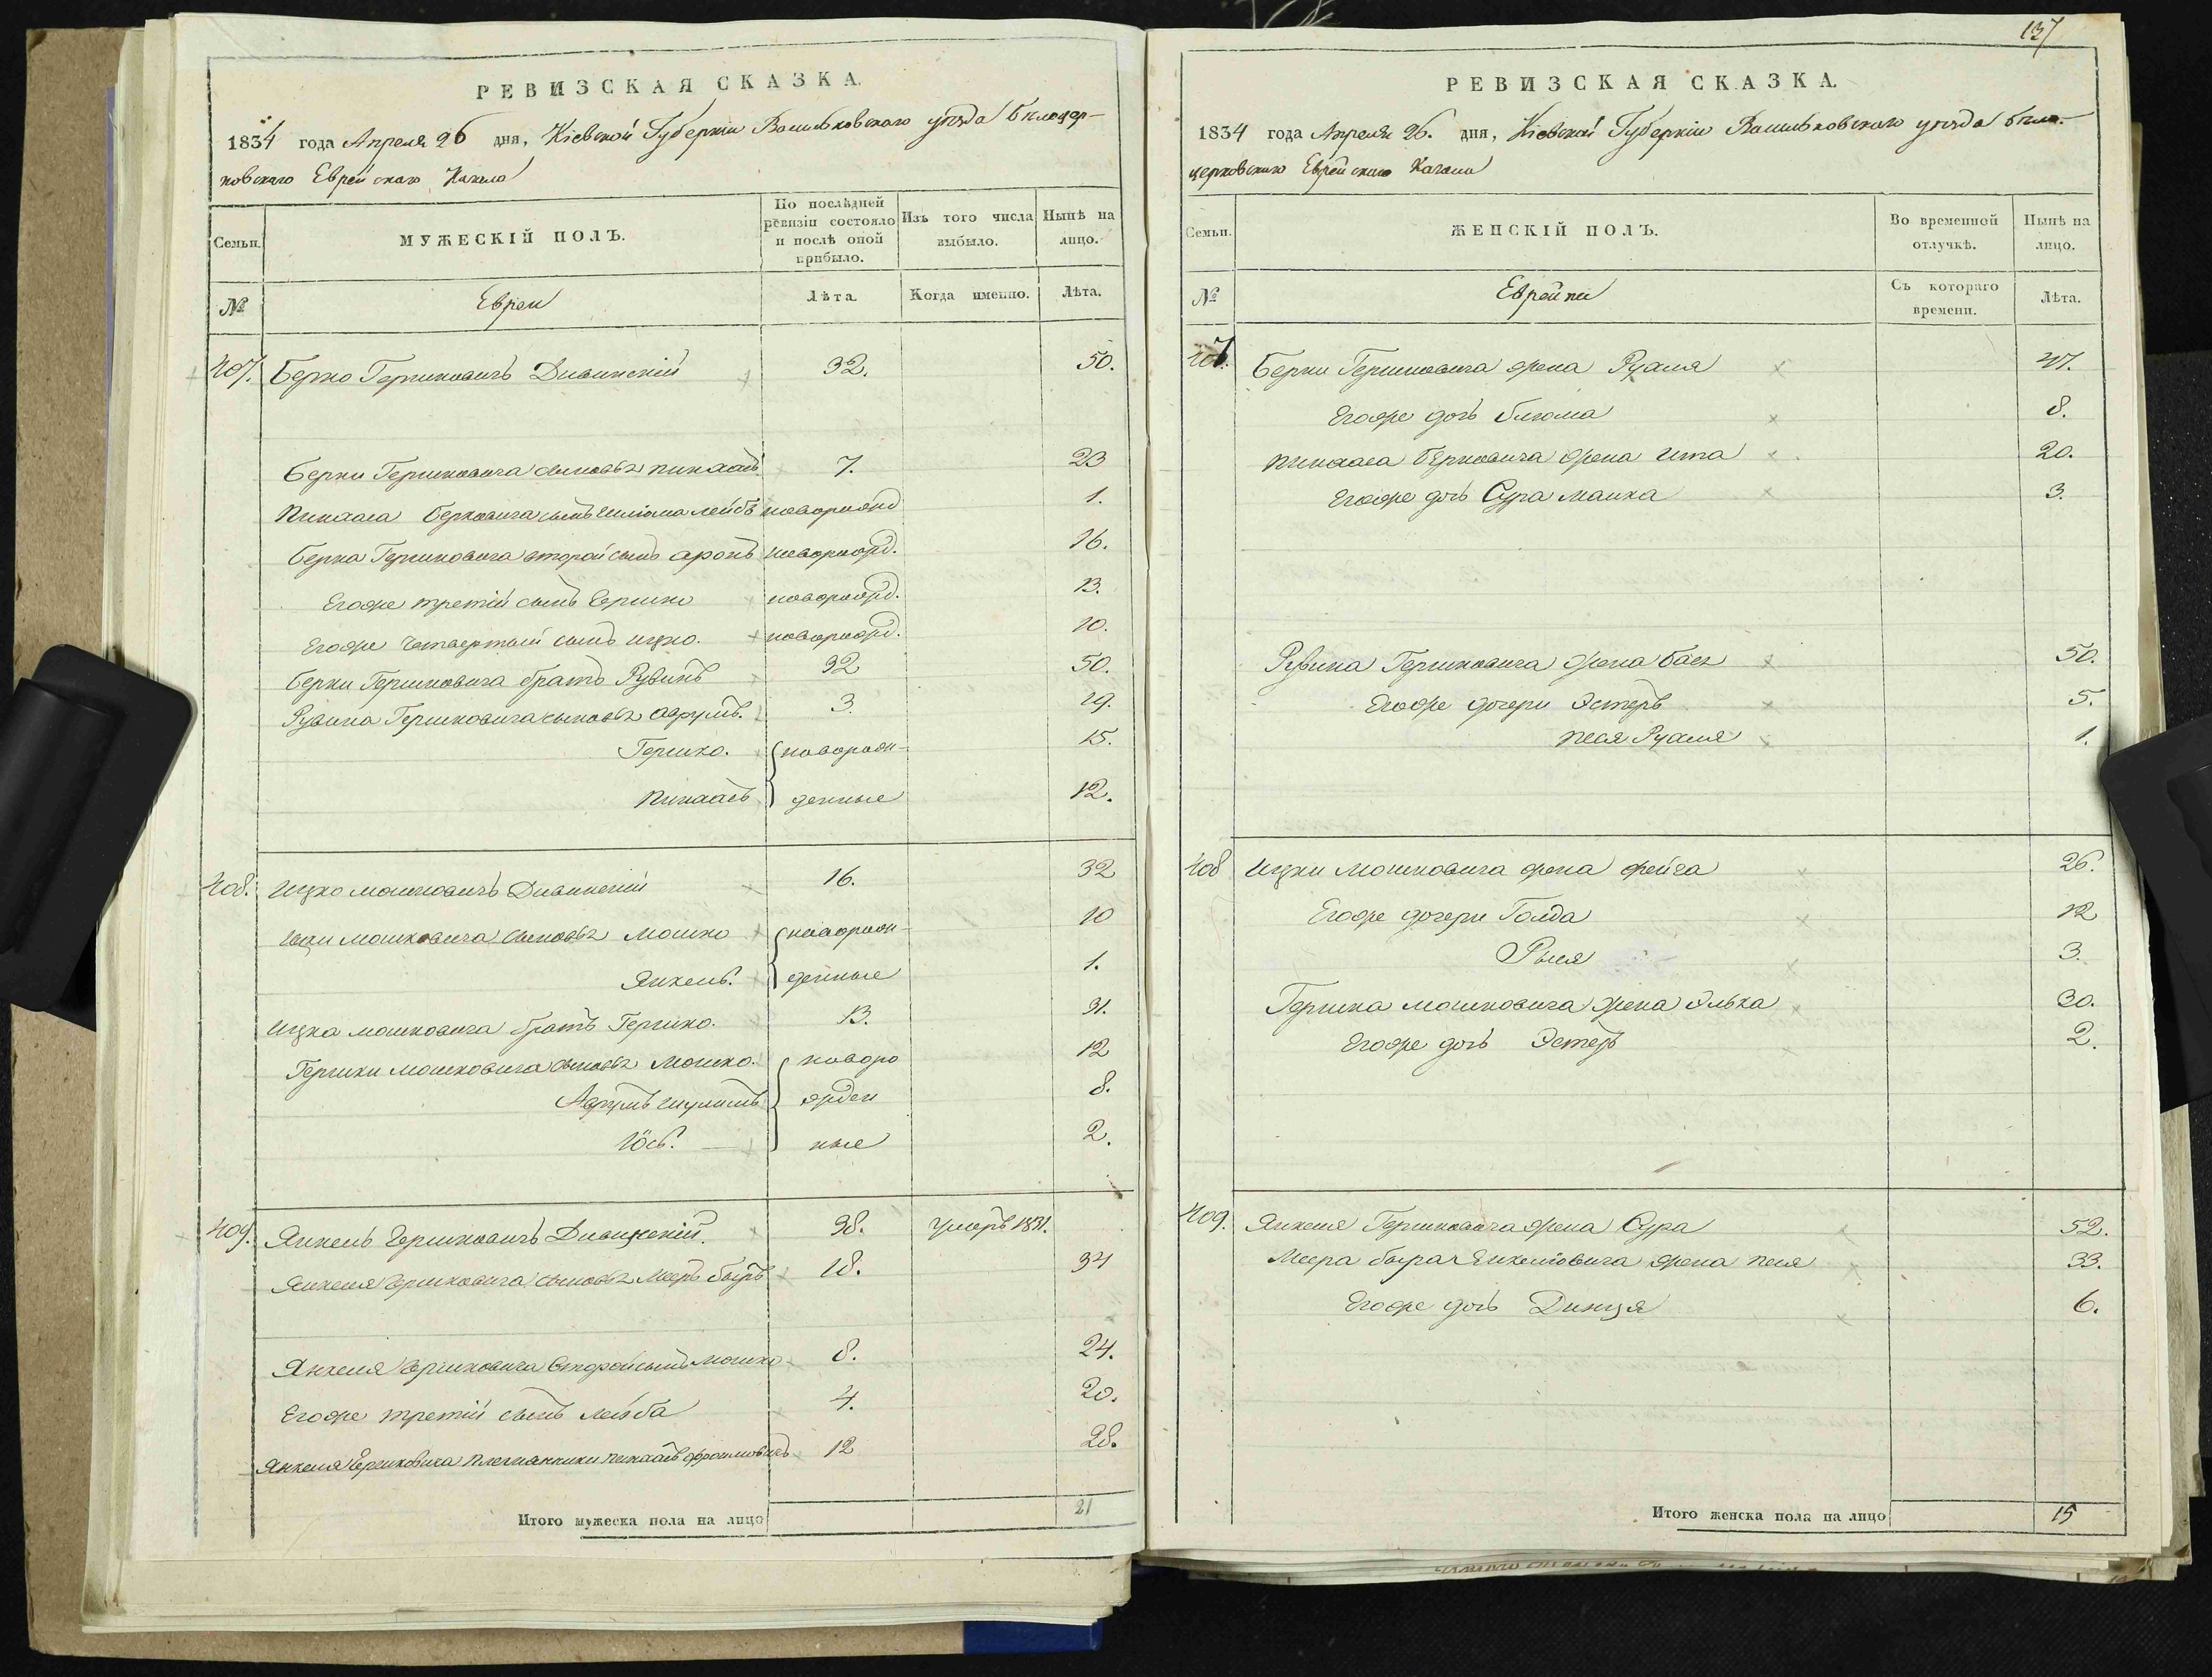 РЕВИЗСКАЯ СКАЗКА.
1834 года Апреля 26 дня, Кіевской Губерніи Васильковского уѣзда бѣлоцер-
ковскаго Еврейскаго Кагала
Семьи.
МУЖЕСКІЙ ПОЛЪ.
По послѣдней ревизіи состояло и послѣ оной прибыло.
Изъ того числа выбыло.
Нынѣ на лицо.
№
Евреи
Лѣта.
Когда именно.
Лѣта.
407. Берко Гершковичъ Дивинскій 32. 50.
Берки Гершковича сыновья пинхасъ 7. 23
Пинхаса Берковича сынъ Шліома лейбъ новорожд 1.
Берка Гершковича второй сынъ аронъ новорожд. 16.
Егоже третій сынъ Гершко новорожд. 13.
Егоже четвертый сынъ ицко. новорожд. 10.
Берки Гершковича братъ Рувинъ 32 50.
Рувина Гершковича сыновья аврумъ. 3. 19.
Гершко. новорож- 15.
Пинхасъ денные 12.
408. Ицко мошковичъ Дивинскій 16. 32
Ицки мошковича сыновья мошко новорож- 10
Янкель. денные 1.
Ицка мошковича братъ Гершко. 13. 31.
Гершки мошковича сыновья Мошко. новоро 12
Аврумъ шулимъ жден 8.
Іось. ные 2.
409. Янкель Гершковичъ Дивинскій. 38. умеръ 1831.
Янкеля Гершковича сыновья Мееръ 18. 34
Янкеля Гершковича Второй сынъ мошко 8. 24.
Егоже третій сынъ лейба 4. 20.
Янкеля Гершковича племянники пинхасъ фроимовичъ 12 28.
Итого мужеска пола на лицо 21
137
РЕВИЗСКАЯ СКАЗКА.
1834 года Апреля 26. дня, Кіевской Губерніи Васильковскаго уѣзда бѣло-
церковскаго Еврейскаго Кагала
Семьи.
ЖЕНСКІЙ ПОЛЪ.
Во временной отлучкѣ.
Нынѣ на лицо.
№
Еврейки
Съ котораго времени.
Лѣта.
407. Берки Гершковича жена Рухля 47.
Егоже дочь блюма 8.
Пинхаса Берковича жена ита 20.
Егоже дочь Сура малка 3.
Рувина Гершковича жена бася 50.
Егоже дочери Эстеръ 5.
песя Рухля 1.
408 Ицки Мошковича жена фейга 26.
Егоже дочери Голда 12
Рыся 3.
Гершка мошковича жена Элька 30.
Егоже дочь Эстеръ 2.
409. Янкеля Гершковича жена Сура 52.
Меера Янкелювича жена песя 33.
Егоже дочь Динця 6.
Итого женска пола на лицо 15